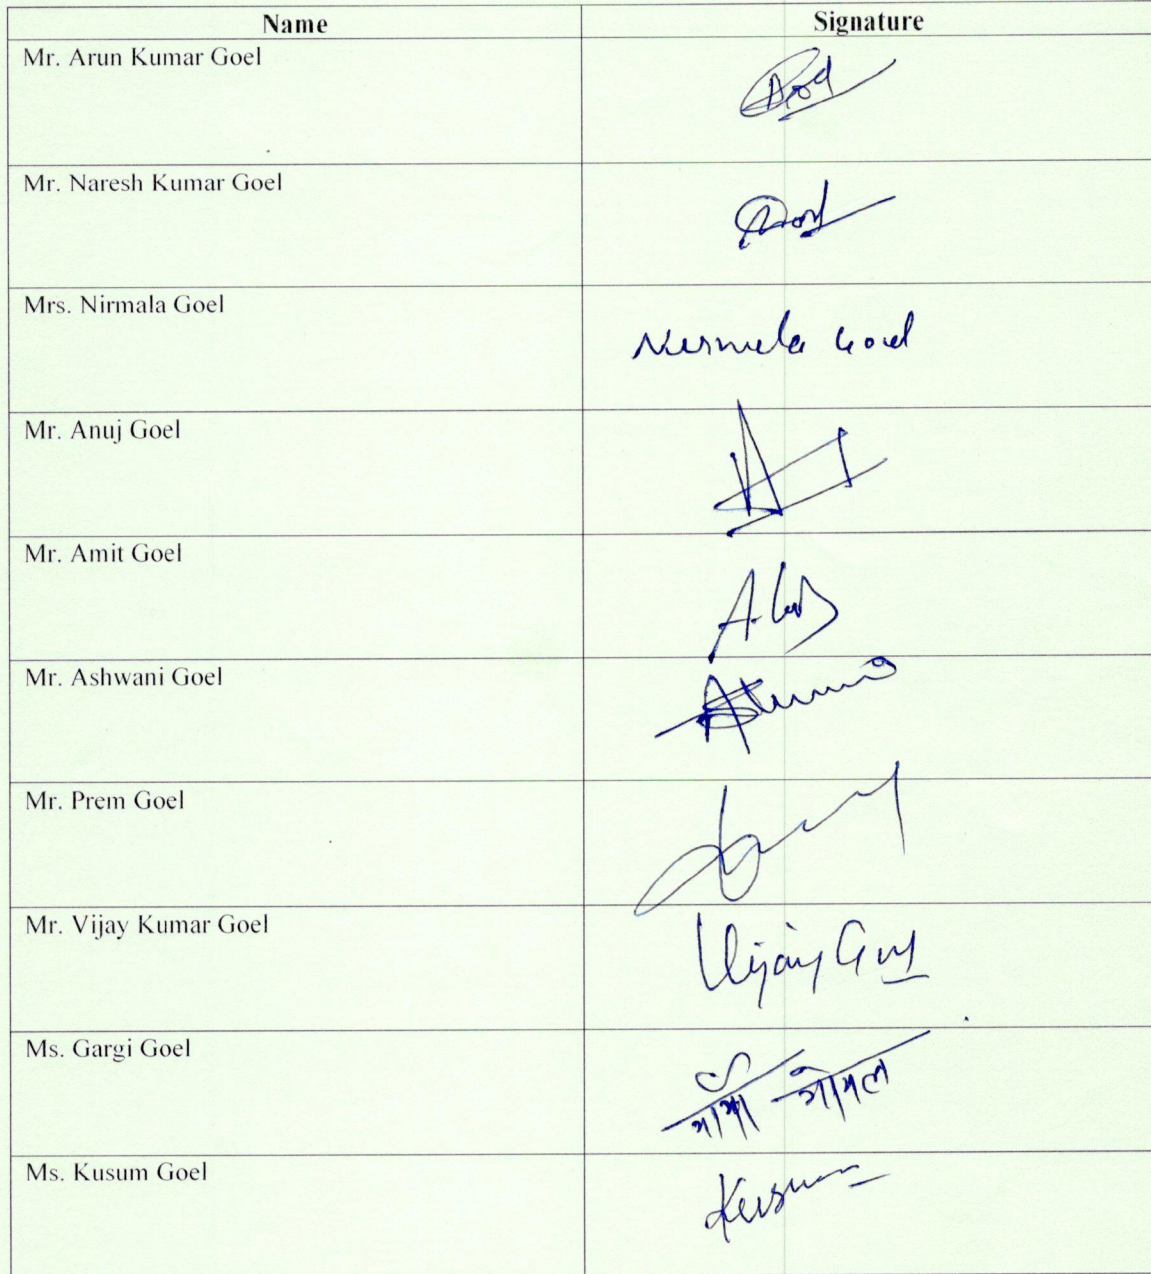 Name Signature
Mr. Arun Kumar Goel
Mr. Naresh Kumar Goel
Mrs. Nirmala Goel
Nirmala Goel
Mr. Anuj Goel
Mr. Amit Goel
Mr. Ashwani Goel
Mr. Prem Goel
Mr. Vijay Kumar Goel
Vijay
Ms. Gargi Goel
गार्गी गोयल
Ms. Kusum Goel
Kusum